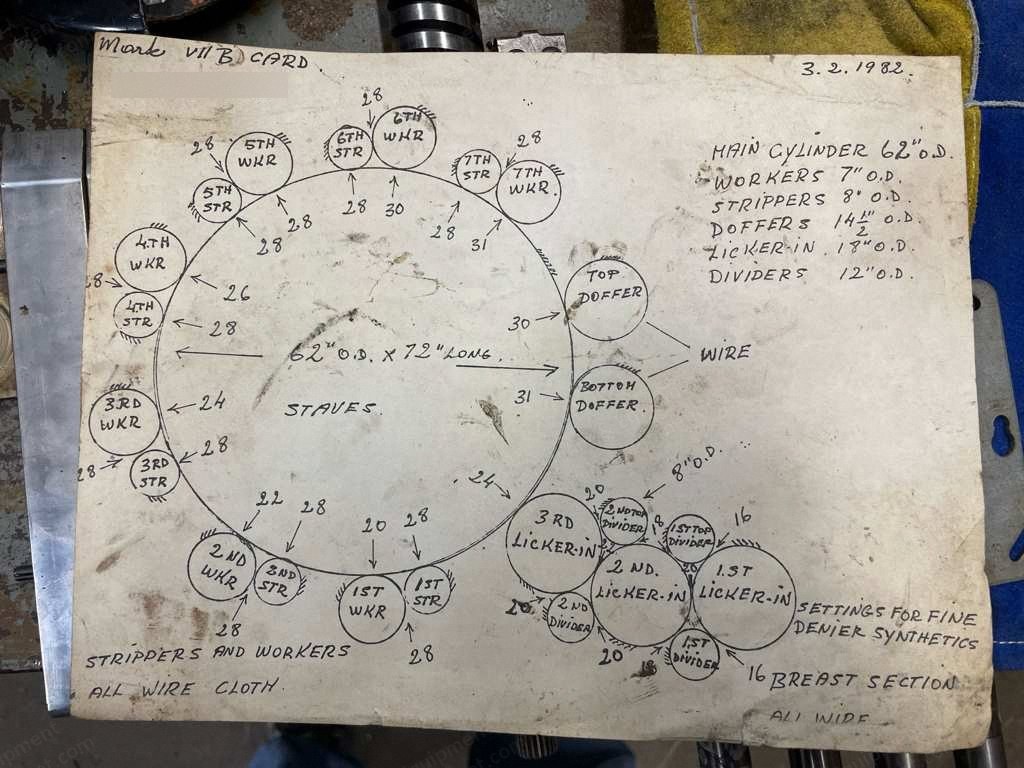 Mark VII B CARD
3.2.1982.
MAIN CYLINDER 62" O.D.
WORKERS 7" O.D.
STRIPPERS 8" O.D.
DOFFERS 14 1/2" O.D.
LICKER-IN 18" O.D.
DIVIDERS 12" O.D.
28
6TH STR
6TH WKR
28
30
28
5TH WKR
5TH STR
28
28
28
7TH STR
7TH WKR
28
31
4TH WKR
28
4TH STR
26
28
TOP DOFFER
30
62" O.D. x 72" LONG.
WIRE
STAVES.
31
BOTTOM DOFFER.
3RD WKR
24
28
3RD STR
28
24
8" O.D.
22
28
20
28
2ND WKR
28
1ST WKR
1ST STR
28
3RD LICKER-IN
20
2ND TOP DIVIDER
18
1ST TOP DIVIDER
16
2ND. LICKER-IN
20
1.ST LICKER-IN
20
2ND DIVIDER
20
18
1.ST DIVIDER
16
SETTINGS FOR FINE
DENIER SYNTHETICS
STRIPPERS AND WORKERS
ALL WIRE CLOTH.
BREAST SECTION
ALL WIRE